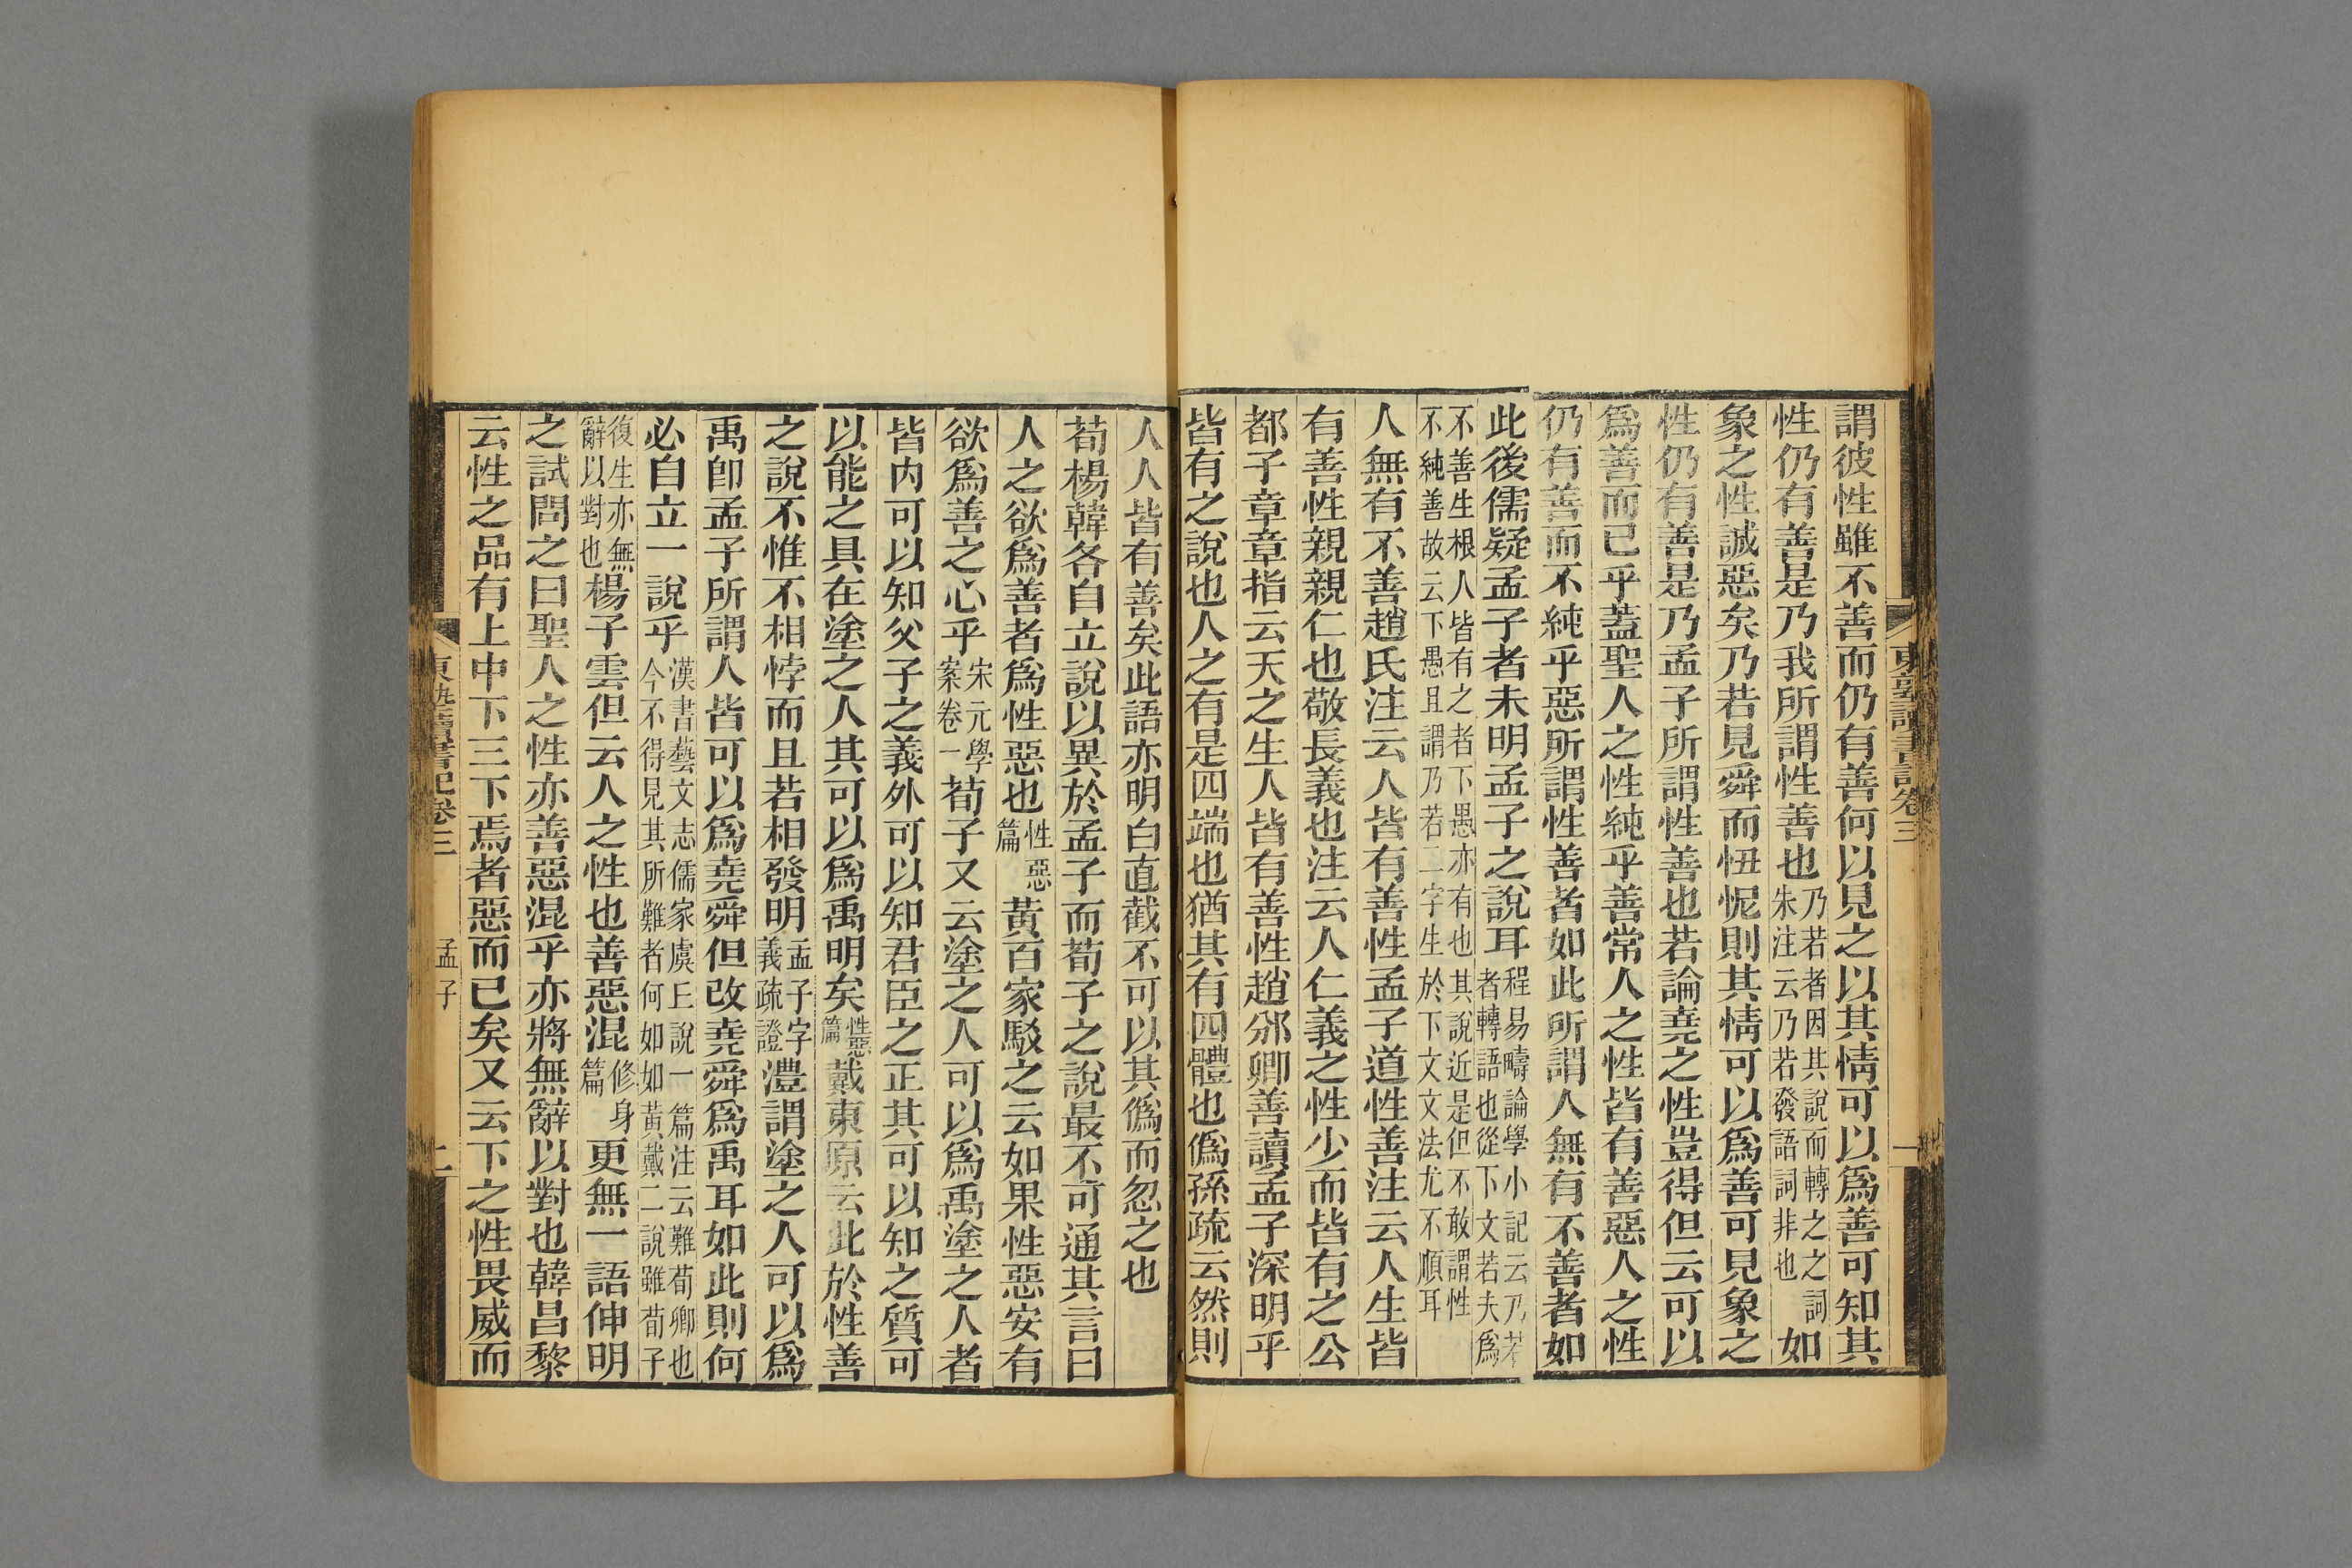 謂彼性雖不善而仍有善何以見之以其情可以爲善可知其
性仍有善是乃我所謂性善也乃若者因其說而轉之之詞朱注云乃若發語詞非也如
象之性誠惡矣乃若見舜而忸怩則其情可以爲善可見象之
性仍有善是乃孟子所謂性善也若論堯之性豈得但云可以
爲善而已乎蓋聖人之性純乎善常人之性皆有善惡人之性
仍有善而不純乎惡所謂性善者如此所謂人無有不善者如
此後儒疑孟子者未明孟子之說耳程易疇論學小記云乃若者轉語也從下文若夫爲
不善生根人皆有之者下愚亦有也其說近是但不敢謂性
不純善故云下愚且謂乃若二字生於下文文法尤不順耳
人無有不善趙氏注云人皆有善性孟子道性善注云人生皆
有善性親親仁也敬長義也注云人仁義之性少而皆有之公
都子章章指云天之生人皆有善性趙邠卿善讀孟子深明乎
皆有之說也人之有是四端也猶其有四體也僞孫疏云然則
人人皆有善矣此語亦明白直截不可以其僞而忽之也
荀楊韓各自立說以異於孟子而荀子之說最不可通其言曰
人之欲爲善者爲性惡也性惡篇黃百家駁之云如果性惡安有
欲爲善之心乎宋元學案卷一荀子又云塗之人可以爲禹塗之人者
皆内可以知父子之義外可以知君臣之正其可以知之質可
以能之具在塗之人其可以爲禹明矣性惡篇戴東原云此於性善
之說不惟不相悖而且若相發明孟子字義疏證澧謂塗之人可以爲
禹卽孟子所謂人皆可以爲堯舜但改堯舜爲禹耳如此則何
必自立一說乎漢書藝文志儒家虞丘說一篇注云難荀卿也今不得見其所難者何如如黃戴二說雖荀子
復生亦無辭以對也楊子雲但云人之性也善惡混修身篇更無一語伸明
之試問之曰聖人之性亦善惡混乎亦將無辭以對也韓昌黎
云性之品有上中下三下焉者惡而已矣又云下之性畏威而
東塾讀書記卷三
孟子
二